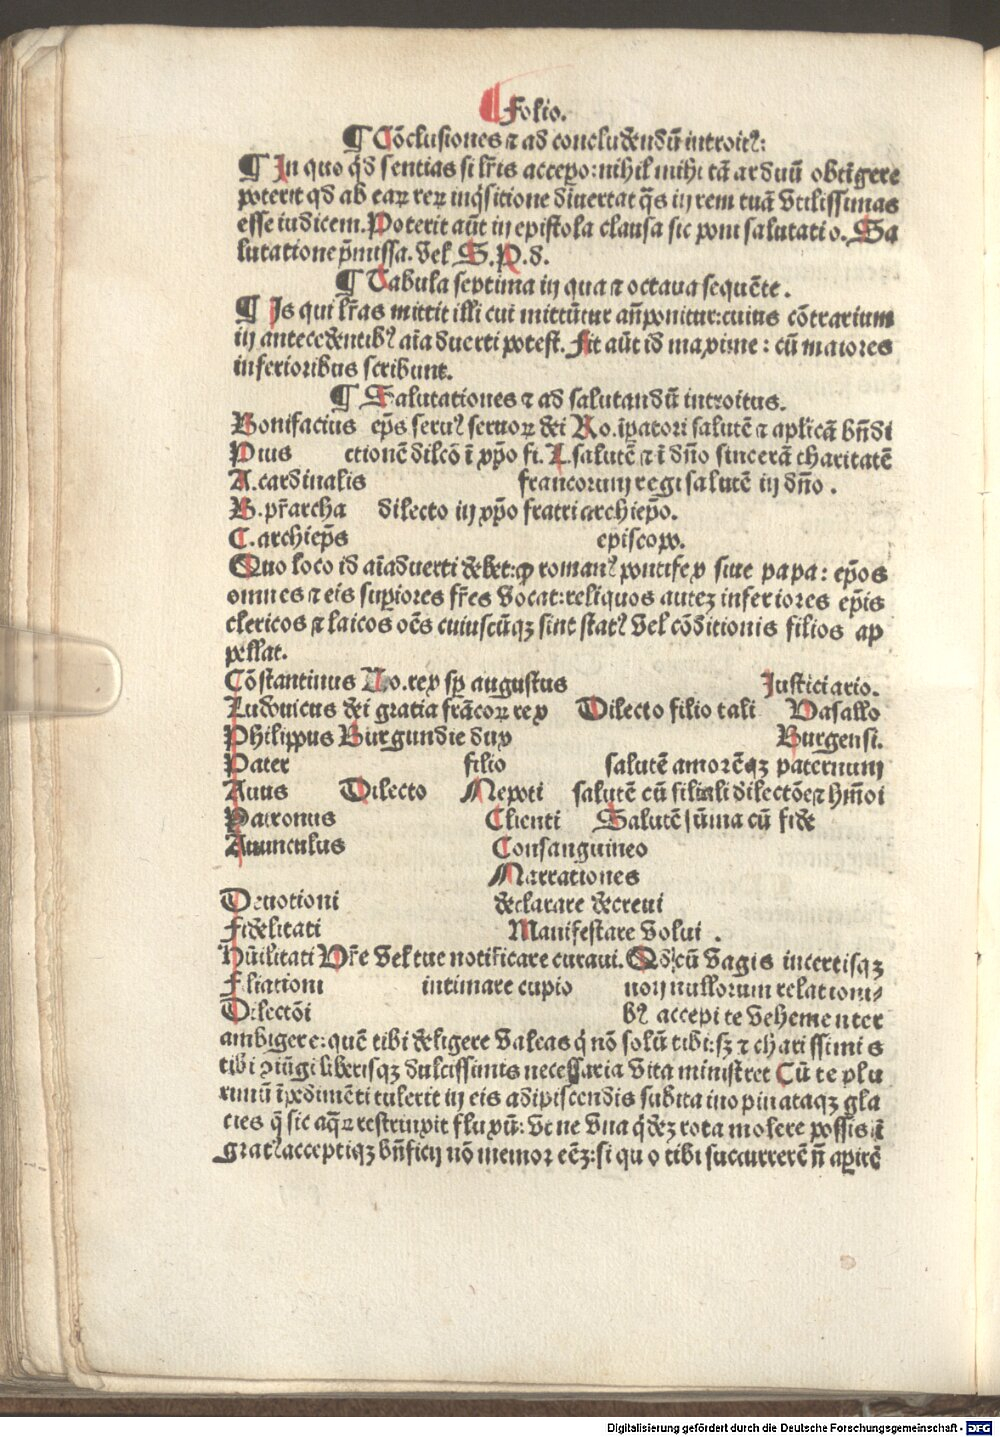 ¶ Folio.
¶ Cōclusiones ⁊ ad concludendū introitꝰ:
¶ In quo qd̄ sentias si lr̄is accepo: nihil mihi tā arduū obtīgere
poterit qd̄ ab eaꝝ reꝝ inq̄sitione diuertat q̄s in rem tuā vtilissimas
esse iudicem. Poterit aūt in epistola clausa sic poni salutatio. Sa
lutatione p̄missa. vel S. P. d.
¶ Tabula septima in qua ⁊ octaua sequēte.
¶ Is qui lr̄as mittit illi cui mittūtur an̄ponitur: cuius cōtrarium
in antecedentibꝰ aīaduerti potest. Fit aūt id maxime: cū maiores
inferioribus scribunt.
¶ Salutationes ⁊ ad salutandū introitus.
Bonifacius ep̄s seruꝰ seruoꝝ dei Ro. īpatori salutē ⁊ aplicā bn̄di
Pius ctionē dilcō ī xp̄o fi. L. salutē ⁊ ī dn̄o sincerā charitatē
A. cardinalis francorum regi salutē in dn̄o.
B. pr̄archa dilecto in xp̄o fratri archiep̄o.
C. archiep̄s episcopo.
Quo loco id aīaduerti debet: ꝙ romanꝰ pontifex siue papa: ep̄os
omnes ⁊ eis supiores fr̄es vocat: reliquos autez inferiores ep̄is
clericos ⁊ laicos oēs cuiuscūqꝫ sint statꝰ vel cōditionis filios ap
pellat.
Cōstantinus Ro. rex sp̄ augustus Justiciario.
Ludouicus dei gratia frācoꝝ rex Dilecto filio tali Vasallo
Philippus Burgundie dux Burgensi.
Pater filio salutē amorēqꝫ paternum
Auus Dilecto Nepoti salutē cū filiali dilectōe ⁊ hm̄oi
Patronus Clienti Salutē sūma cū fide
Auunculus Consanguineo
Narrationes
Deuotioni declarare decreui
Fidelitati Manifestare volui.
Hūilitati Vr̄e vel tue notificare curaui. Qd̄ cū vagis incertisqꝫ
Filiationi intimare cupio non nullorum relationi⸗
Dilectōi bꝰ accepi te vehementer
ambigere: quē tibi deligere valeas q̄ nō solū tibi: sꝫ ⁊ charissimis
tibi ↄiūgi liberisqꝫ dulcissimis necessaria vita ministret Cū te plu
rimū īpedimēti tulerit in eis adipiscendis subita inopinataqꝫ gla
cies q̄ sic aq̄ꝝ restrinxit fluxū: vt ne vna q̄dēꝫ rota molere possis ī
gratꝰ acceptiqꝫ bn̄ficij nō memor eēꝫ: si quo tibi succurrerē n̄ apirē
Digitalisierung gefördert durch die Deutsche Forschungsgemeinschaft - DFG